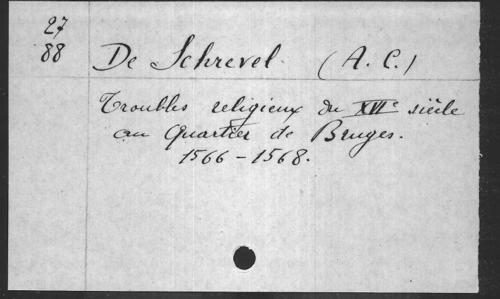 27
88
De Schrevel. (A. C.)
Troubles religieux du XVIe siècle
au Quartier de Bruges.
1566 - 1568.